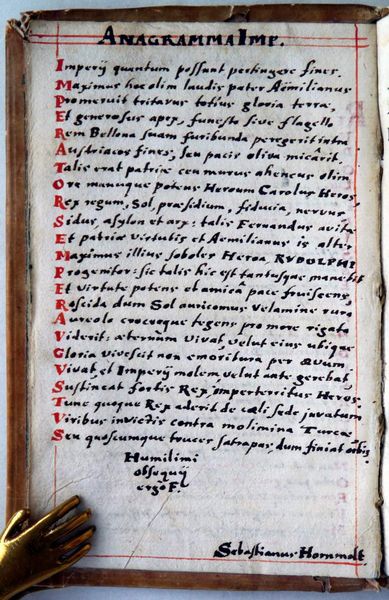 ANAGRAMMA IMP.
Imperij quantum possunt pertingere fines.
Maximus hoc olim laudis pater Aemilianus
Promeruit tritavus totius gloria terrae,
Et generosus apex, funesto sive flagello
Rem Bellona suam furibunda peregerit intra
Austriacos fines, seu pacis oliva micârit.
Talis erat patriae ceu murus aheneus olim
Ore manuque potens Heroum Carolus Heros,
Rex regum, Sol, praesidium, fiducia, nervus,
Sidus, asylon et arx: talis Fernandus avitae
Et patriae virtutis et Aemilianus is alter
Maximus illius soboles Heroa RVDOLPHI
Progenitor: sic talis hic est tantusque manebit
Et virtute potens et amicâ pace fruiscens,
Roscida dum Sol auricomus velamine
Aureolo croceoque tegens pro more rigato
Viderit: aeternum vivat, velut eius ubique
Gloria vivescit non emoritura per aevum,
Vivat, et Imperij molem, velut ante gerebat,
Sustineat fortis Rex, imperterritus Heros
Tunc quoque Rex aderit de caeli sede juvatum
Viribus invictis contra molimina Turcae
Seu quoscumque truces satrapas, dum finiat orbis.
Humilimi
obsequij
ergo F.
Sebastianus Hornmolt